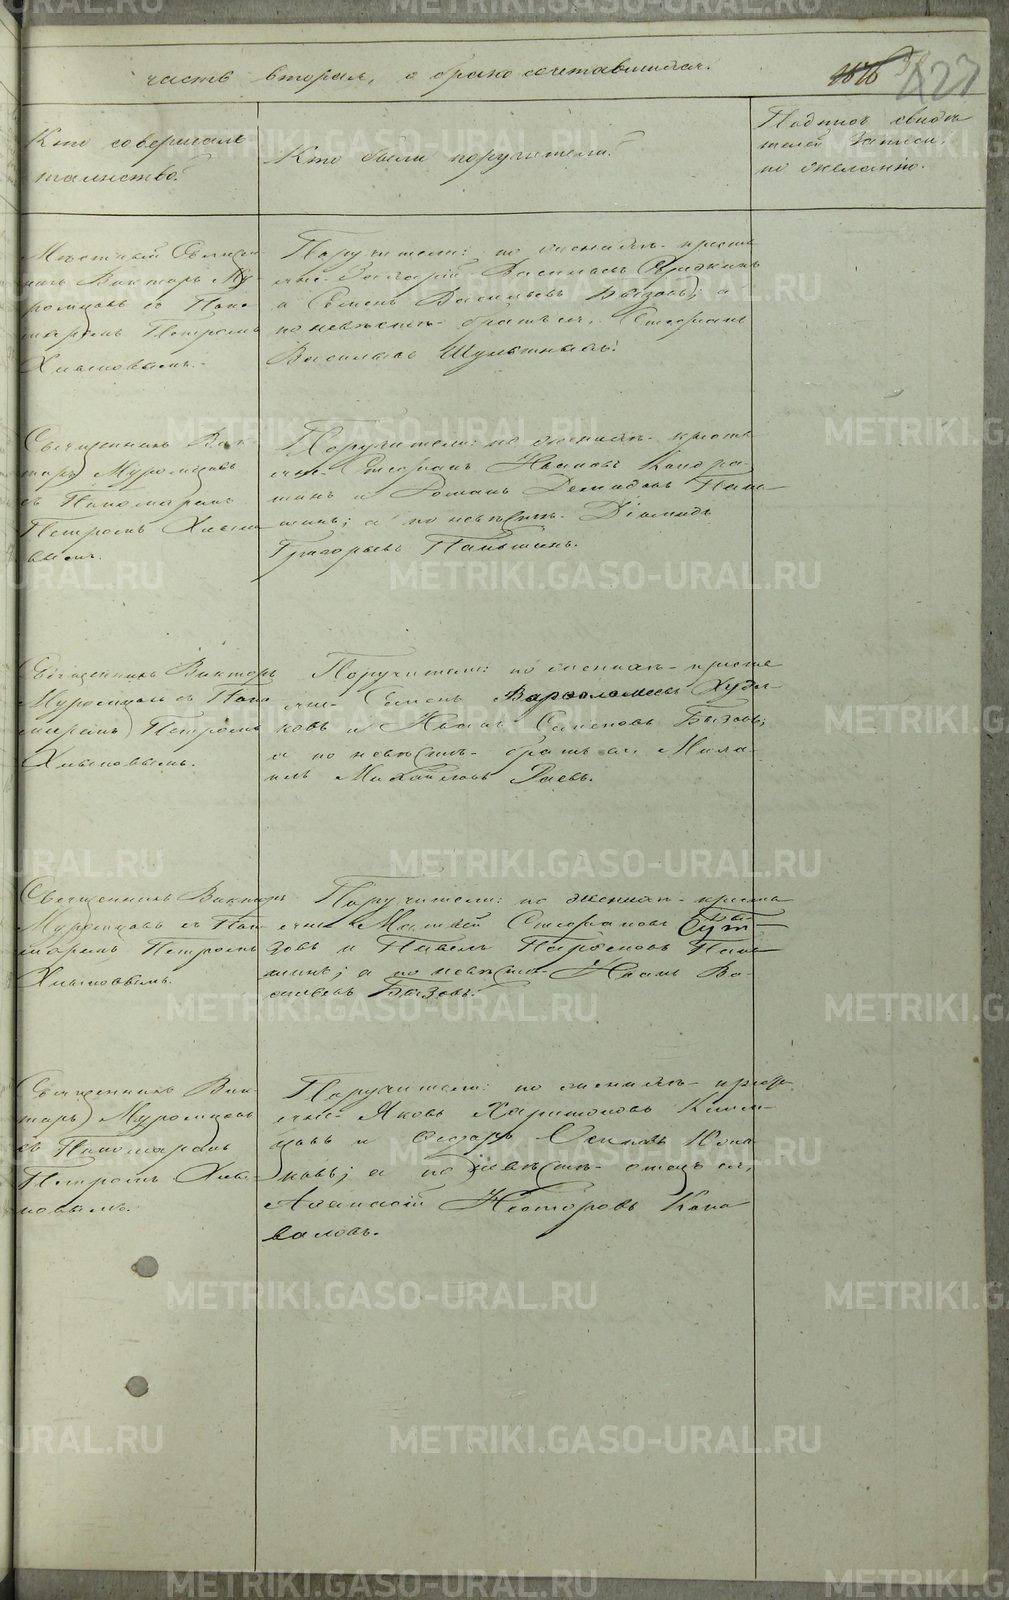 часть вторая, о бракосочетавшихся.
227
Кто совершалъ
таинство.
Кто были поручители.
Подпись свидѣ
телей записи,
по желанію.
Мѣстный Священ
никъ Викторъ Му
ромцовъ съ Поно
маремъ Петромъ
Хлыновымъ.
Поручители: по женихѣ- кресть
яне Васильевъ
и Семенъ Васильевъ Бызовъ; а
по невѣстѣ- братъ ея, Стефанъ
Васильевъ
Священникъ Вик-
торъ Муромцовъ
съ Пономаремъ
Петромъ Хлыно
вымъ.
Поручители: по женихѣ- кресть
яне Стефанъ Ивановъ
и Романъ Демидовъ Пань
шинъ; а по невѣстѣ- Діомидъ
Григорьевъ Паньшинъ.
Священникъ Викторъ
Муромцовъ съ Поно
маремъ Петромъ
Хлыновымъ.
Поручители: по женихѣ- кресть
яне- Семенъ Варѳоломеевъ Худя
ковъ и Иванъ Бызовъ;
а по невѣстѣ- братъ ея Миха-
илъ Михайловъ Раевъ.
Священникъ Викторъ
Муромцовъ съ Поно
маремъ Петромъ
Хлыновымъ.
Поручители: по женихѣ- кресть
яне Матвѣй Стефановъ Бы-
зовъ и Павелъ Парѳеновъ Пань
шинъ; а по невѣстѣ- Иванъ Ва-
сильевъ Бызовъ.
Священникъ Вик-
торъ Муромцовъ
съ Пономаремъ
Петромъ Хлы-
новымъ.
Поручители: по женихѣ- кресть
яне Яковъ Харитоновъ
и Осиповъ
а по невѣстѣ- отецъ ея,
Аѳанасій Несторовъ Коно
валовъ.
METRIKI.GASO-URAL.RU